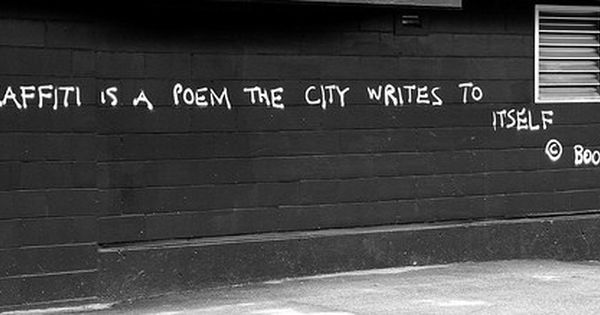 AFFITI IS A POEM THE CITY WRITES TO
ITSELF
© BOO